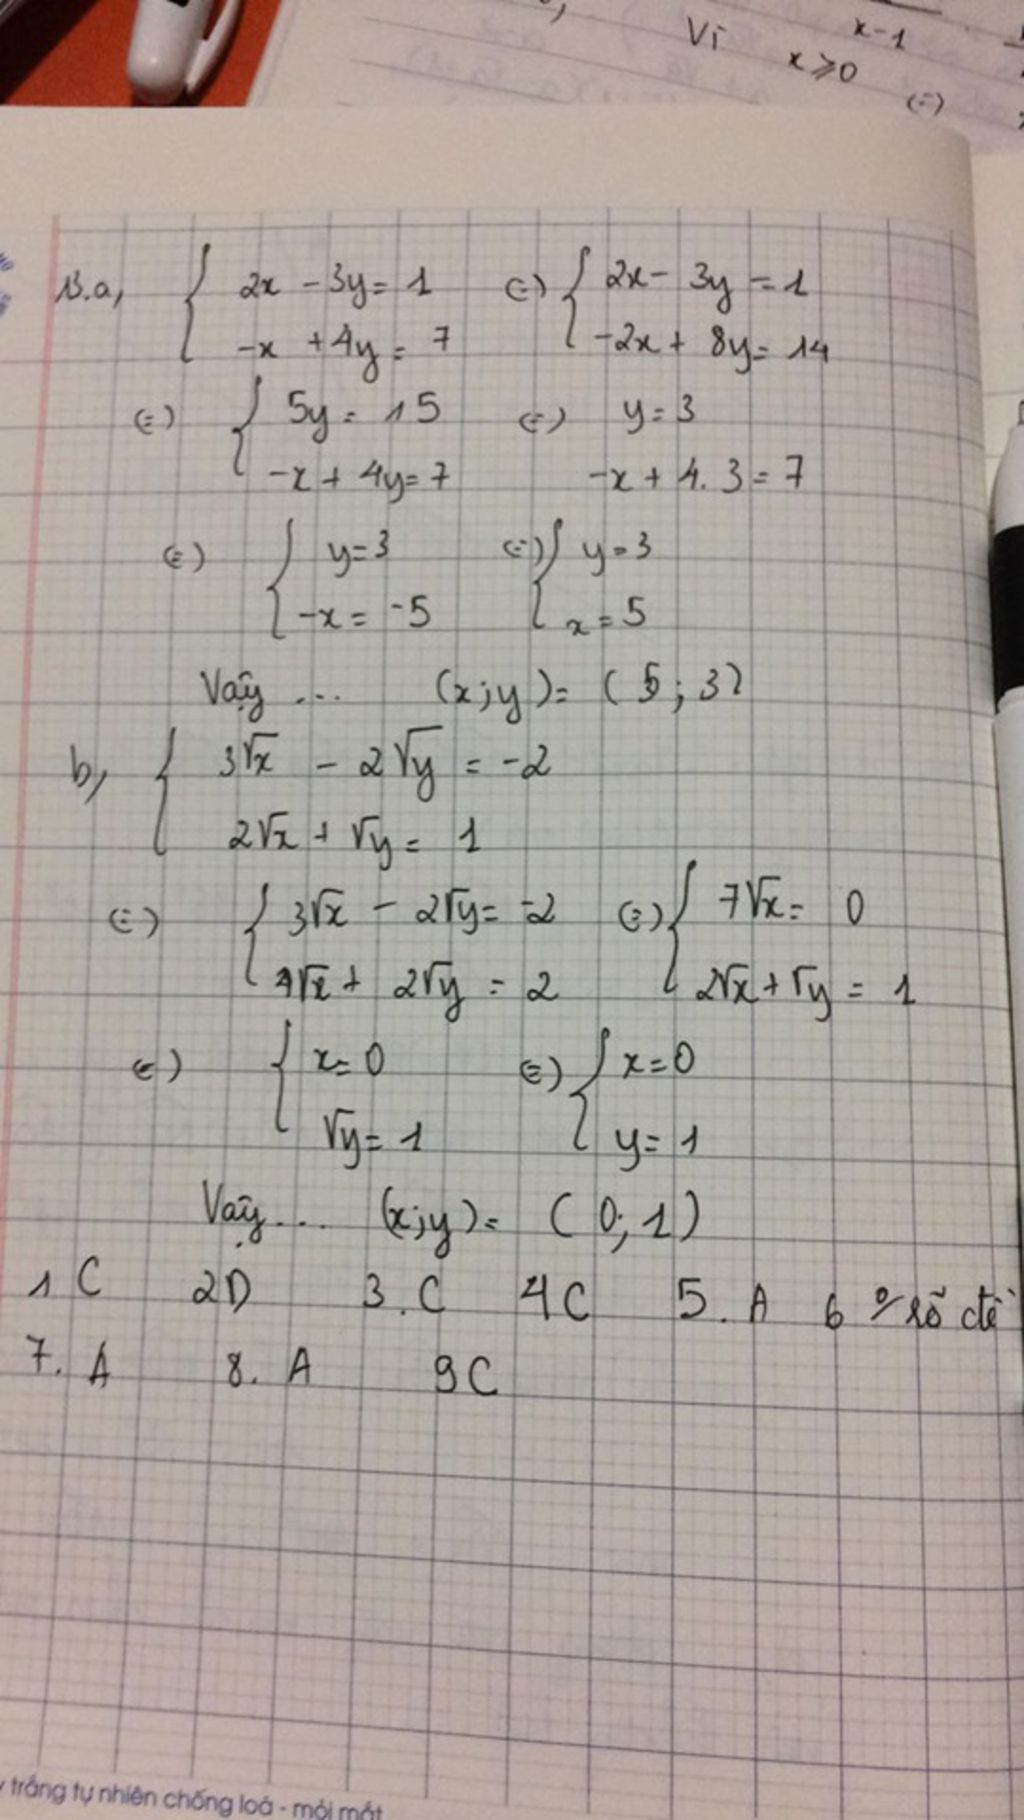 Vì
x-1
x ⩾ 0
(=)
13.a, { 2x - 3y = 1 (=) { 2x - 3y = 1
-x + 4y = 7 -2x + 8y = 14
(=) { 5y = 15 (=) y = 3
-x + 4y = 7 -x + 4. 3 = 7
(=) { y = 3 (=) { y = 3
-x = -5 x = 5
Vậy ... (x;y) = ( 5 ; 3)
b, { 3√x - 2√y = -2
2√x + √y = 1
(=) { 3√x - 2√y = -2 (=) { 7√x = 0
4√x + 2√y = 2 2√x + √y = 1
(=) { x = 0 (=) { x = 0
√y = 1 y = 1
Vậy ... (x;y) = ( 0; 1 )
1 C 2D 3. C 4C 5. A 6 rõ đề
7. A 8. A 9C
trắng tự nhiên chống loá - mỏi mắt